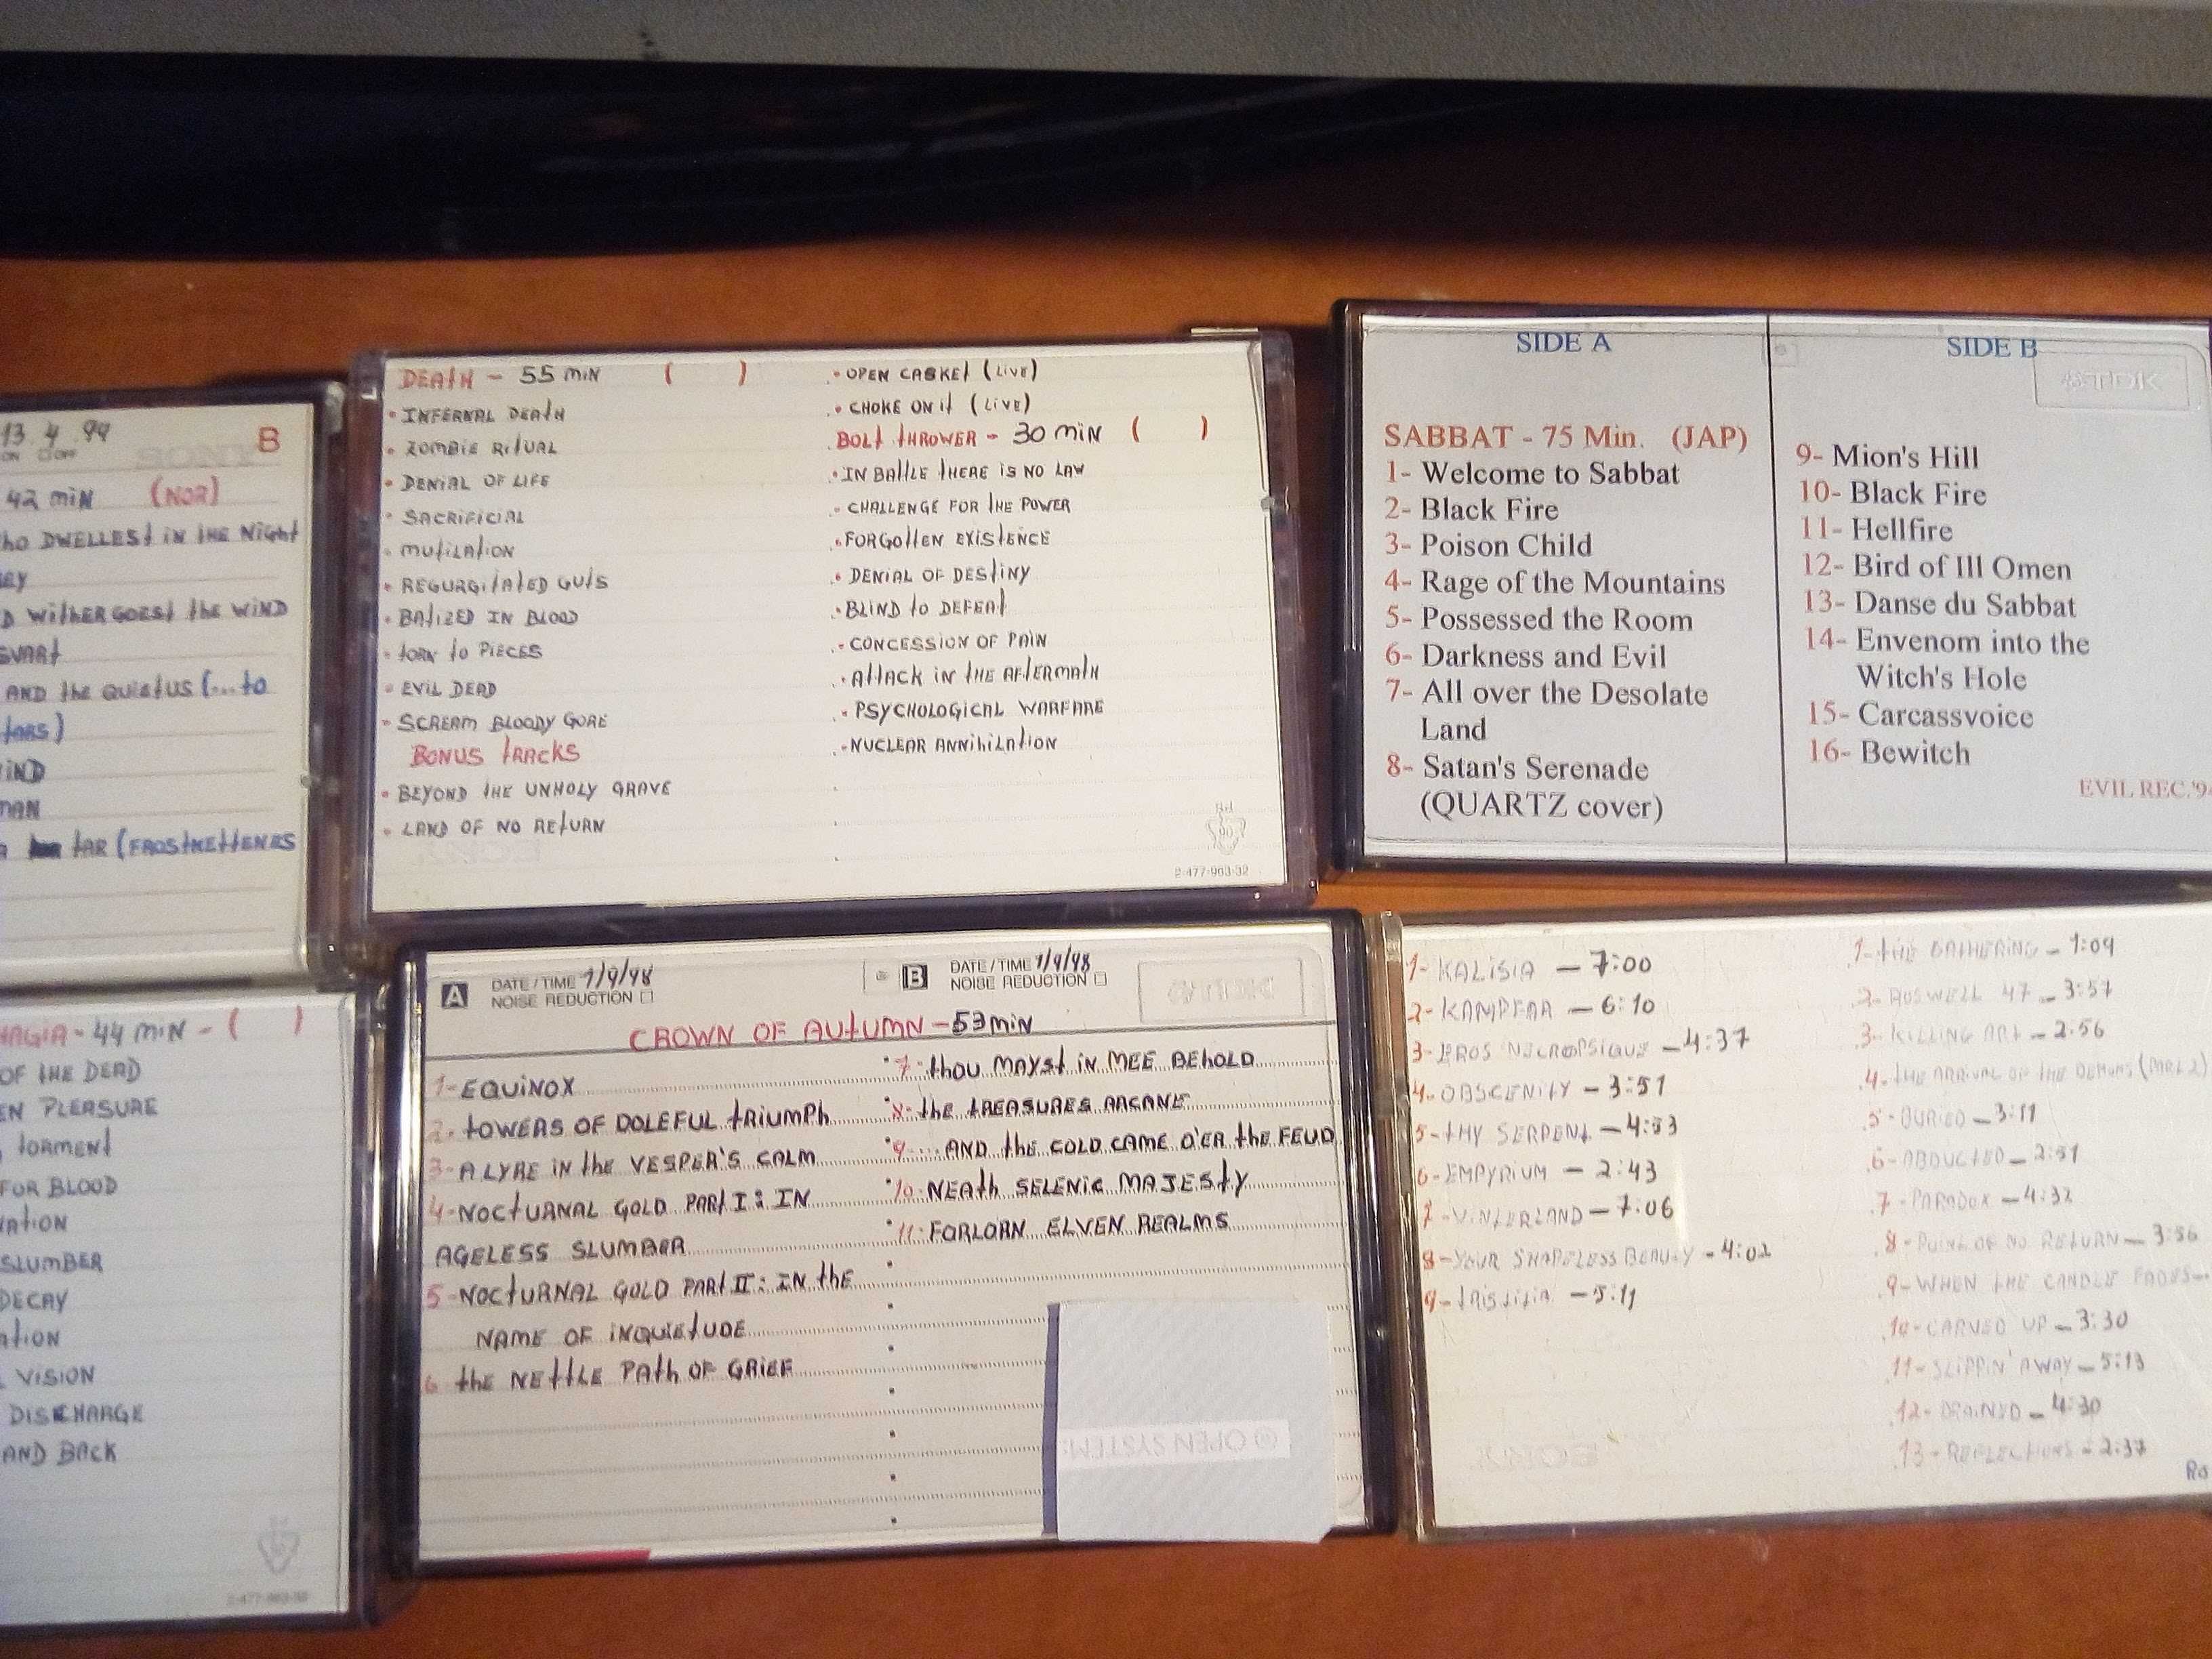 13.4.99 B
42 MIN (NOR)
HO DWELLEST IN THE NIGHT
EY
D WITHER GOEST THE WIND
SVART
AND THE QUIETUS (...TO
TARS)
IND
MAN
TAR (FROSTNETTENES
DEATH - 55 MIN ( )
• INFERNAL DEATH
• ZOMBIE RITUAL
• DENIAL OF LIFE
• SACRIFICIAL
• MUTILATION
• REGURGITATED GUTS
• BATIZED IN BLOOD
• TORN TO PIECES
• EVIL DEAD
• SCREAM BLOODY GORE
BONUS TRACKS
• BEYOND THE UNHOLY GRAVE
• LAND OF NO RETURN
• OPEN CASKET (LIVE)
• CHOKE ON IT (LIVE)
BOLT THROWER - 30 MIN ( )
• IN BATTLE THERE IS NO LAW
• CHALLENGE FOR THE POWER
• FORGOTTEN EXISTENCE
• DENIAL OF DESTINY
• BLIND TO DEFEAT
• CONCESSION OF PAIN
• ATTACK IN THE AFTERMATH
• PSYCHOLOGICAL WARFARE
• NUCLEAR ANNIHILATION
2-477-903-32
SIDE A
SABBAT - 75 Min. (JAP)
1- Welcome to Sabbat
2- Black Fire
3- Poison Child
4- Rage of the Mountains
5- Possessed the Room
6- Darkness and Evil
7- All over the Desolate
Land
8- Satan's Serenade
(QUARTZ cover)
SIDE B
TDK
9- Mion's Hill
10- Black Fire
11- Hellfire
12- Bird of Ill Omen
13- Danse du Sabbat
14- Envenom into the
Witch's Hole
15- Carcassvoice
16- Bewitch
EVIL REC.'9
HAGIA - 44 MIN - ( )
OF THE DEAD
EN PLEASURE
TORMENT
FOR BLOOD
ATION
SLUMBER
DECAY
ATION
VISION
DISCHARGE
AND BACK
A DATE/TIME 7/9/98
NOISE REDUCTION
B DATE/TIME 7/9/98
NOISE REDUCTION
CROWN OF AUTUMN - 53 MIN
1- EQUINOX
2- TOWERS OF DOLEFUL TRIUMPH
3- A LYRE IN THE VESPER'S CALM
4- NOCTURNAL GOLD PART I: IN
AGELESS SLUMBER
5- NOCTURNAL GOLD PART II: IN THE
NAME OF INQUIETUDE
6 THE NETTLE PATH OF GRIEF
7- THOU MAYST IN MEE BEHOLD
8- THE TREASURES ARCANE
9- ...AND THE COLD CAME O'ER THE FEUD
10- NEATH SELENIC MAJESTY
11- FORLORN ELVEN REALMS
OPEN SYSTEM
1- KALISIA - 7:00
2- KAMPFAR - 6:10
3- EROS NECROPSIQUE - 4:37
4- OBSCENITY - 3:51
5- THY SERPENT - 4:53
6- EMPYRIUM - 2:43
7- VINTERLAND - 7:06
8- YOUR SHAPELESS BEAUTY - 4:02
9- TRISTITIA - 5:11
SONY
1- THE GATHERING - 1:09
2- ROSWELL 47 - 3:57
3- KILLING ART - 2:56
4- THE ARRIVAL OF THE DEMONS (PART 2)
5- BURIED - 3:11
6- ABDUCTED - 2:51
7- PARADOX - 4:32
8- POINT OF NO RETURN - 3:56
9- WHEN THE CANDLE FADES -
10- CARVED UP - 3:30
11- SLIPPIN' AWAY - 5:13
12- DRAINED - 4:30
13- REFLECTIONS - 2:37